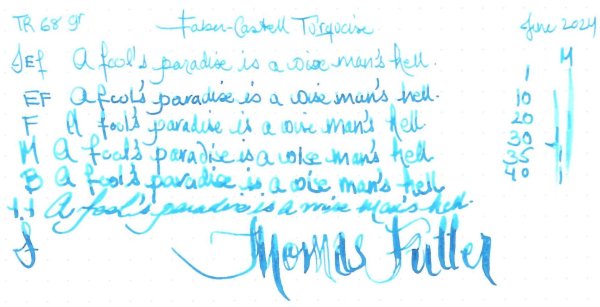 TR 68 gr Faber-Castell Turquoise June 2024
M
JEf A fool's paradise is a wise man's hell. 1
EF A fool's paradise is a wise man's hell. 10
F A fool's paradise is a wise man's hell 20
M A fool's paradise is a wise man's hell 30
B A fool's paradise is a wise man's hell 35
1.1 A fool's paradise is a wise man's hell. 40
J Thomas Fuller